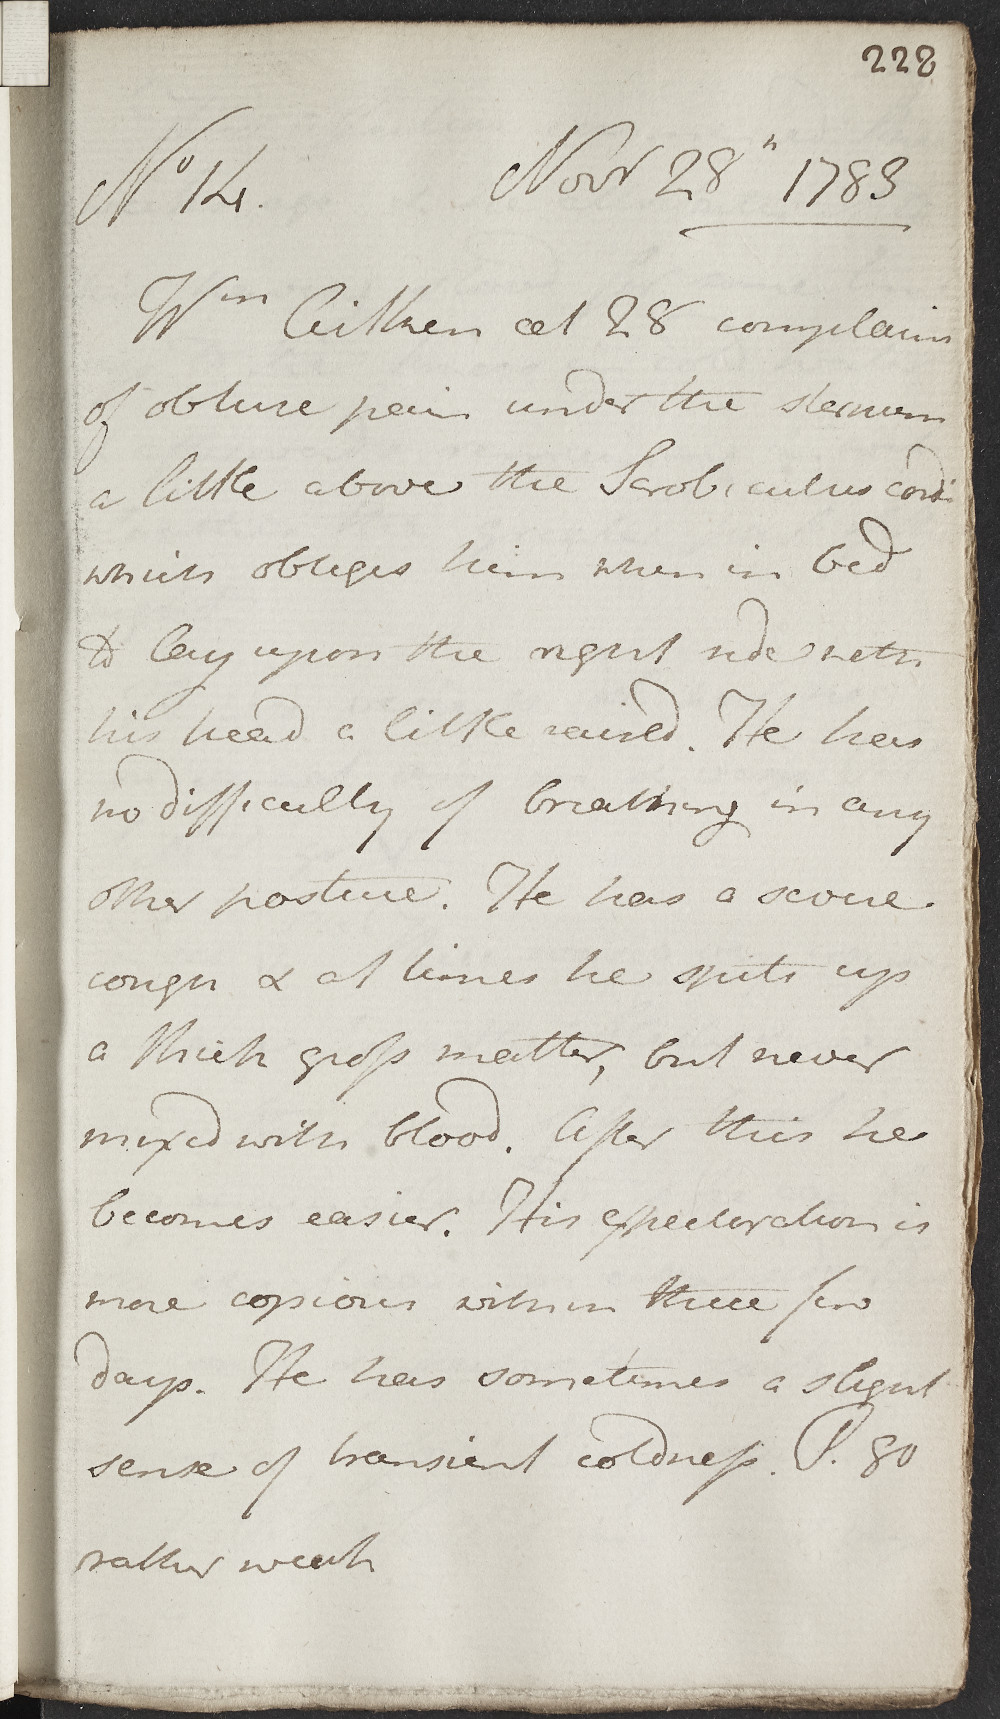 228
No 14. Novr 28th 1783
Wm Aitken aet 28 complains
of obtuse pain under the sternum
a little above the Scrobiculus cordis
which obliges him when in bed
to lay upon the right side with
his head a little raised. He has
no difficulty of breathing in any
other posture. He has a severe
cough & at times he spits up
a thick gross matter, but never
mixed with blood. After this he
becomes easier. His expectoration is
more copious within these few
days. He has sometimes a slight
sense of transient coldness. P. 80
rather weak